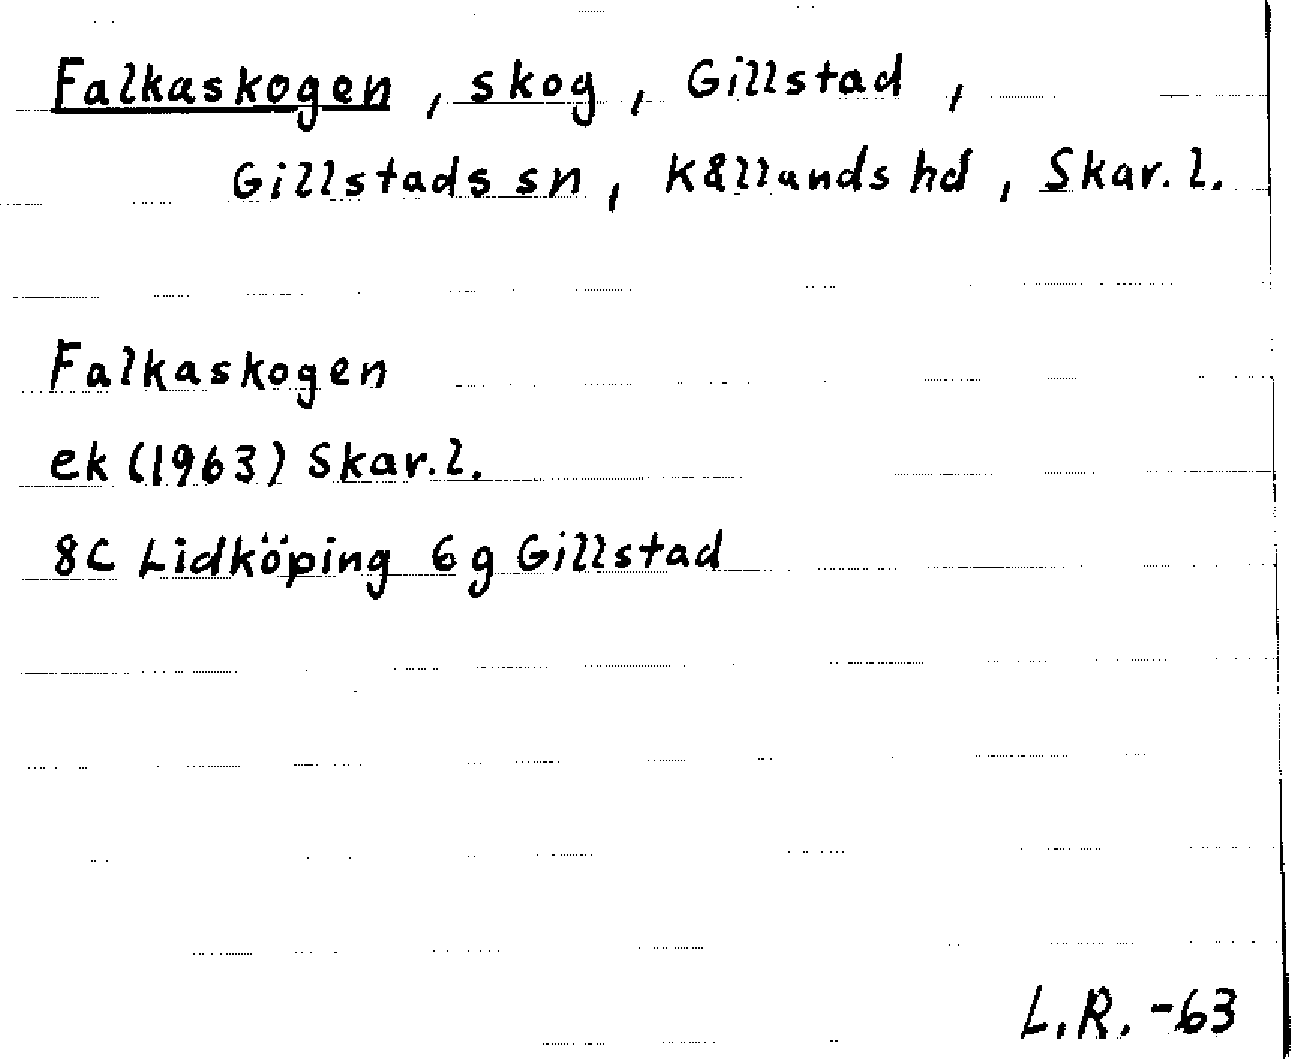 Falkaskogen, skog, Gillstad,
Gillstads sn, Kållands hd, Skar. l.
Falkaskogen
ek (1963) Skar. l.
8C Lidköping 6g Gillstad
L.R. -63